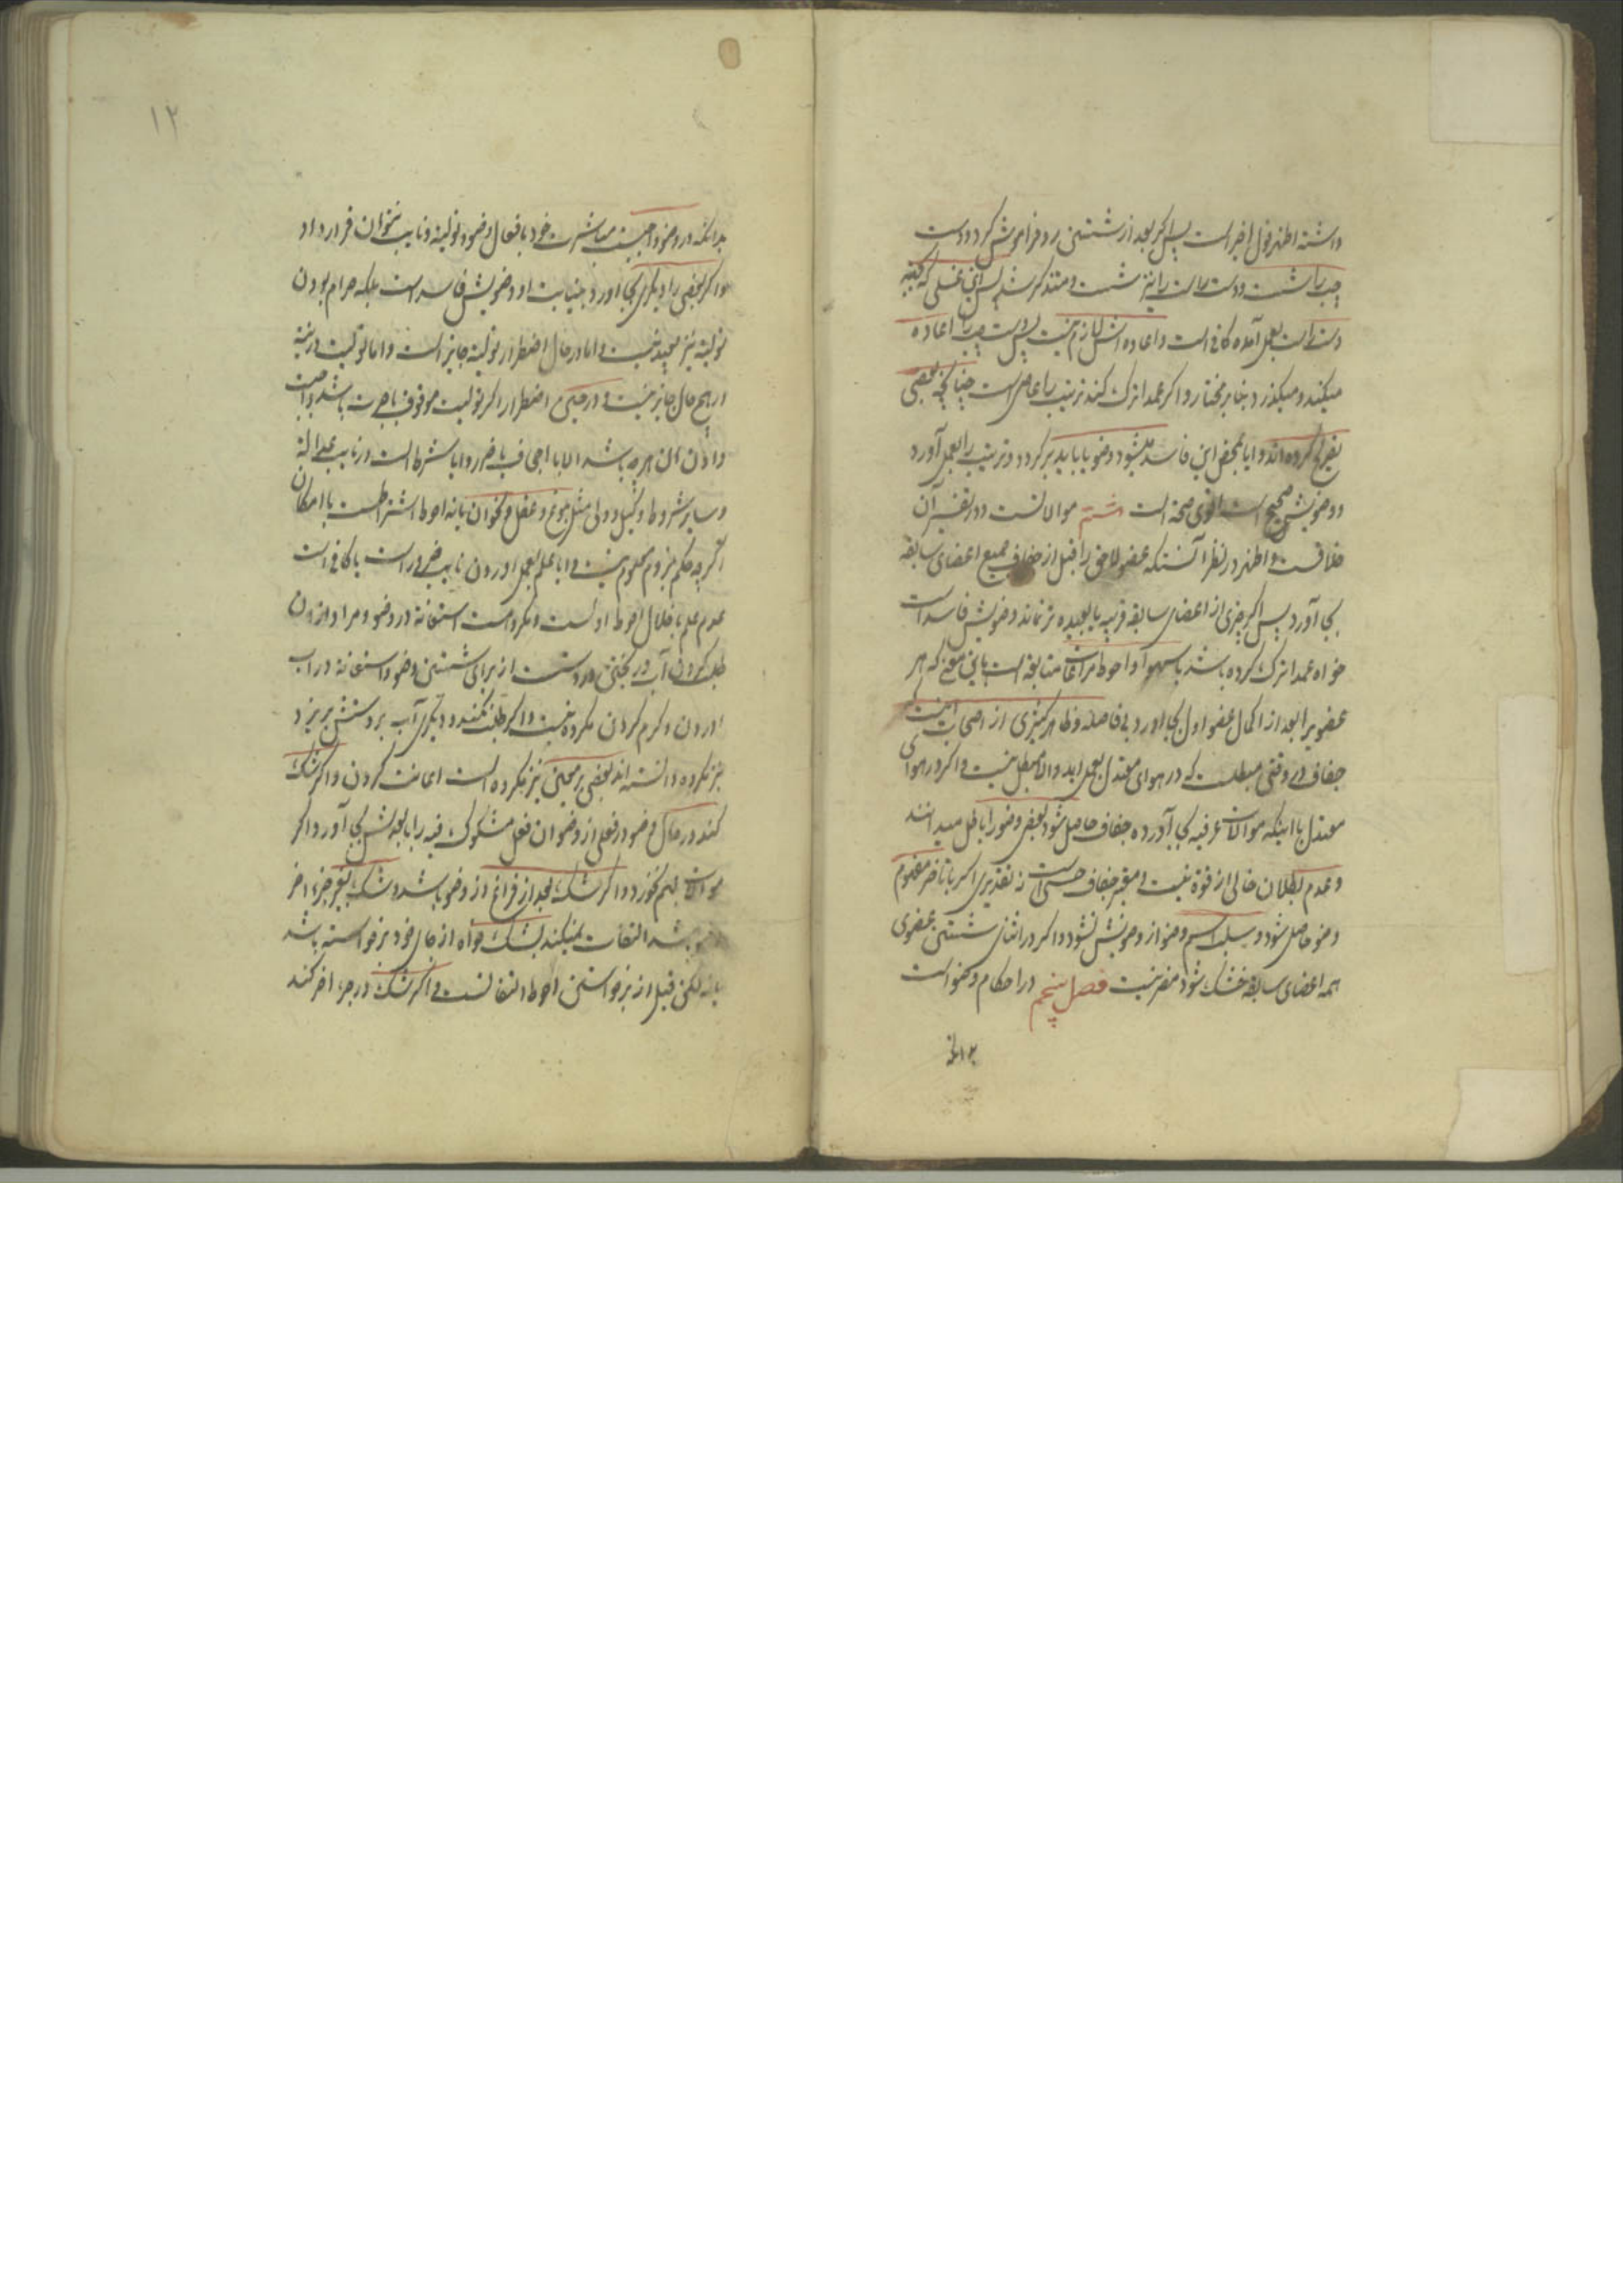 داشته اظهر قول اخیر است پس اگر بعد از شستن رو فراموش کرد دست
چپ را شست و دست راست را نیز شست و متذکر شد پس این غسلی که
دست راست بعمل آمده کافی است و اعاده اش لازم نیست پس دست چپ را اعاده
میکند و میگذرد بنا بر مختار و اگر عمدا ترک کند ترتیب را عاصی است چنانچه بعضی
تصریح کرده اند و ایا بمحض این فاسد میشود وضو یا باید برگردد و ترتیب را بعمل آورد
و وضویش صحیح است اقوی صحة است ششم موالاتست و در تفسیر آن
خلافست و اظهر در نظر آنستکه عضو لاحق را قبل از جفاف جمیع اعضای سابقه
بجا آورد پس اگر چیزی از اعضای سابقه قریبه یا بعیده تر نماند وضویش فاسد است
خواه عمدا ترک کرده باشد یا سهوا و احوط مراعات متابعة است باین معنی که هر
عضویرا بعد از اکمال عضو اول بجا اورد بی فاصله و ظاهر کثیری از اصحاب اینست
جفاف در وقتی مبطلست که در هوای معتدل بعمل اید و الا مبطل نیست و اگر در هوای
معتدل با اینکه موالات عرفیه بجا آورده جفاف حاصل شود بعضی وضو را باطل میدانند
و عدم بطلان خالی از قوة نیست و معتبر جفاف حسی است نه تقدیری اگر با تاخیر معلوم
وضو حاصل شود و سلب اسم وضو از وضویش نشود و اگر در اثنای شستن عضوی
همه اعضای سابقه خشک شود مضر نیست فصل پنجم در احکام وضو است
بدانکه
۱۲
بدانکه در وضو واجبست مباشرت خود بافعال وضو و تولیة و نایب نتوان قرار داد
و اگر بعضی را دیگری بجا آورد بنیابت او وضویش فاسد است بلکه حرام بودن
تولیة نیز بعید نیست و اما در حال اضطرار تولیة جایز است و اما تولیت در نیة
در هیچ حال جایز نیست و در حین اضطرار اگر تولیت موقوف باجرت باشد واجب است
دادن آن هر چه باشد الا با اجحاف یا ضرر و ایا شرط است در نایب عدالة
و سایر شروط وکیل و ولی مثل بلوغ و عقل و نحو ان یا نه احوط اشتراطست با امکان
اگر چه حکم بلزوم معلوم نیست و ایا علم بعمل اوردن نایب ضرور است یا کافی است
عدم علم باخلال احوط اولست و مکروهست استعانة در وضو و مراد از ان
طلب کردن آب ریختن در دست از برای شستن وضو و استعانة در اب
اوردن و گرم کردن مکروه نیست و اگر طلب نکند و دیگری آب بر دستش بریزد
نیز مکروه دانسته اند بعضی بر معین نیز مکروه است اعانت کردن و اگر شک
کند در حال وضو در فعلی از وضو ان فعل مشکوک فیه را با بعدش بجا آورد اگر
موالات بهم نخورد و اگر شک بعد از فراغ از وضو باشد و شک بغیر جزء اخر
وضو باشد التفات نمیکند بشک خواه از جای خود برخواسته باشد
یا نه لکن قبل از برخواستن احوط التفاتست و اگر شک در جزء اخر کند